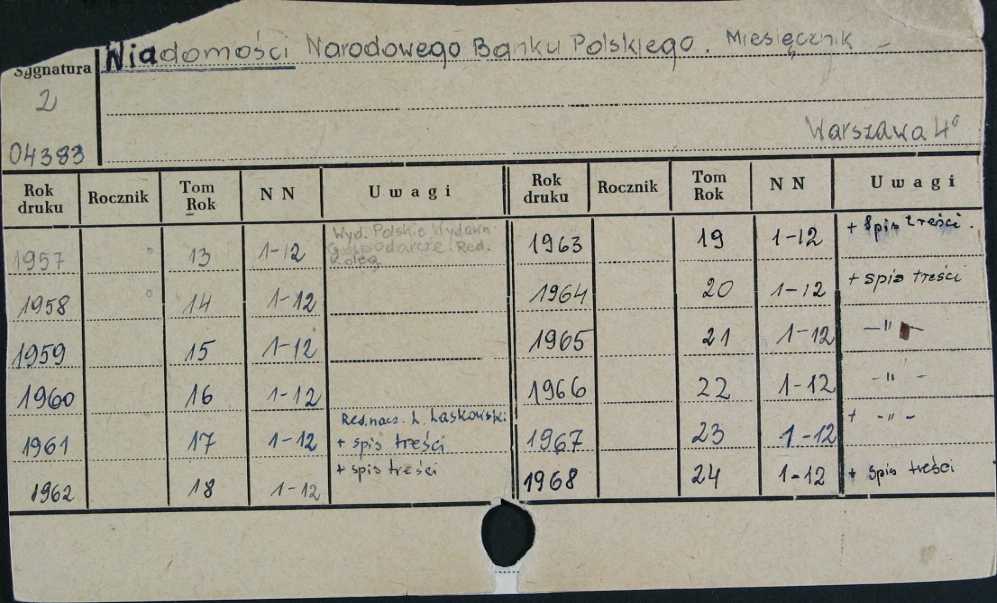 Wiadomości Narodowego Banku Polskiego. Miesięcznik –
Sygnatura
2
04383
Warszawa 4°
Rok druku Rocznik Tom Rok N N Uwagi Rok druku Rocznik Tom Rok N N Uwagi
1957 13 1-12 Wyd. Polskie Wydawn. Gospodarcze. Red. Koleg. 1963 19 1-12 + Spis treści.
1958 14 1-12 1964 20 1-12 + spis treści
1959 15 1-12 1965 21 1-12 – " –
1960 16 1-12 1966 22 1-12 – " –
1961 17 1-12 Red. nacz. L. Laskowski + spis treści 1967 23 1-12 + – " –
1962 18 1-12 + spis treści 1968 24 1-12 + spis treści